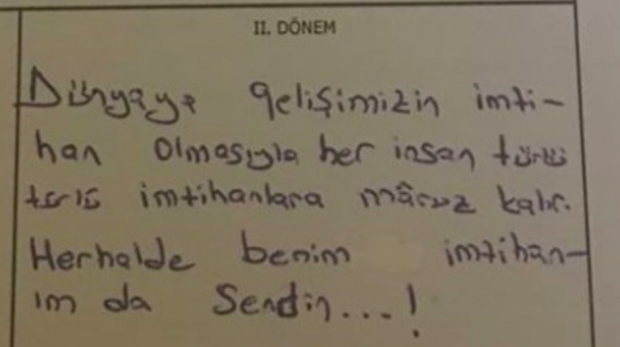 II. DÖNEM
Dünyaya gelişimizin imti-
han olmasıyla her insan türlü
türlü imtihanlara mâruz kalır.
Herhalde benim imtihan-
ım da Sendin...!